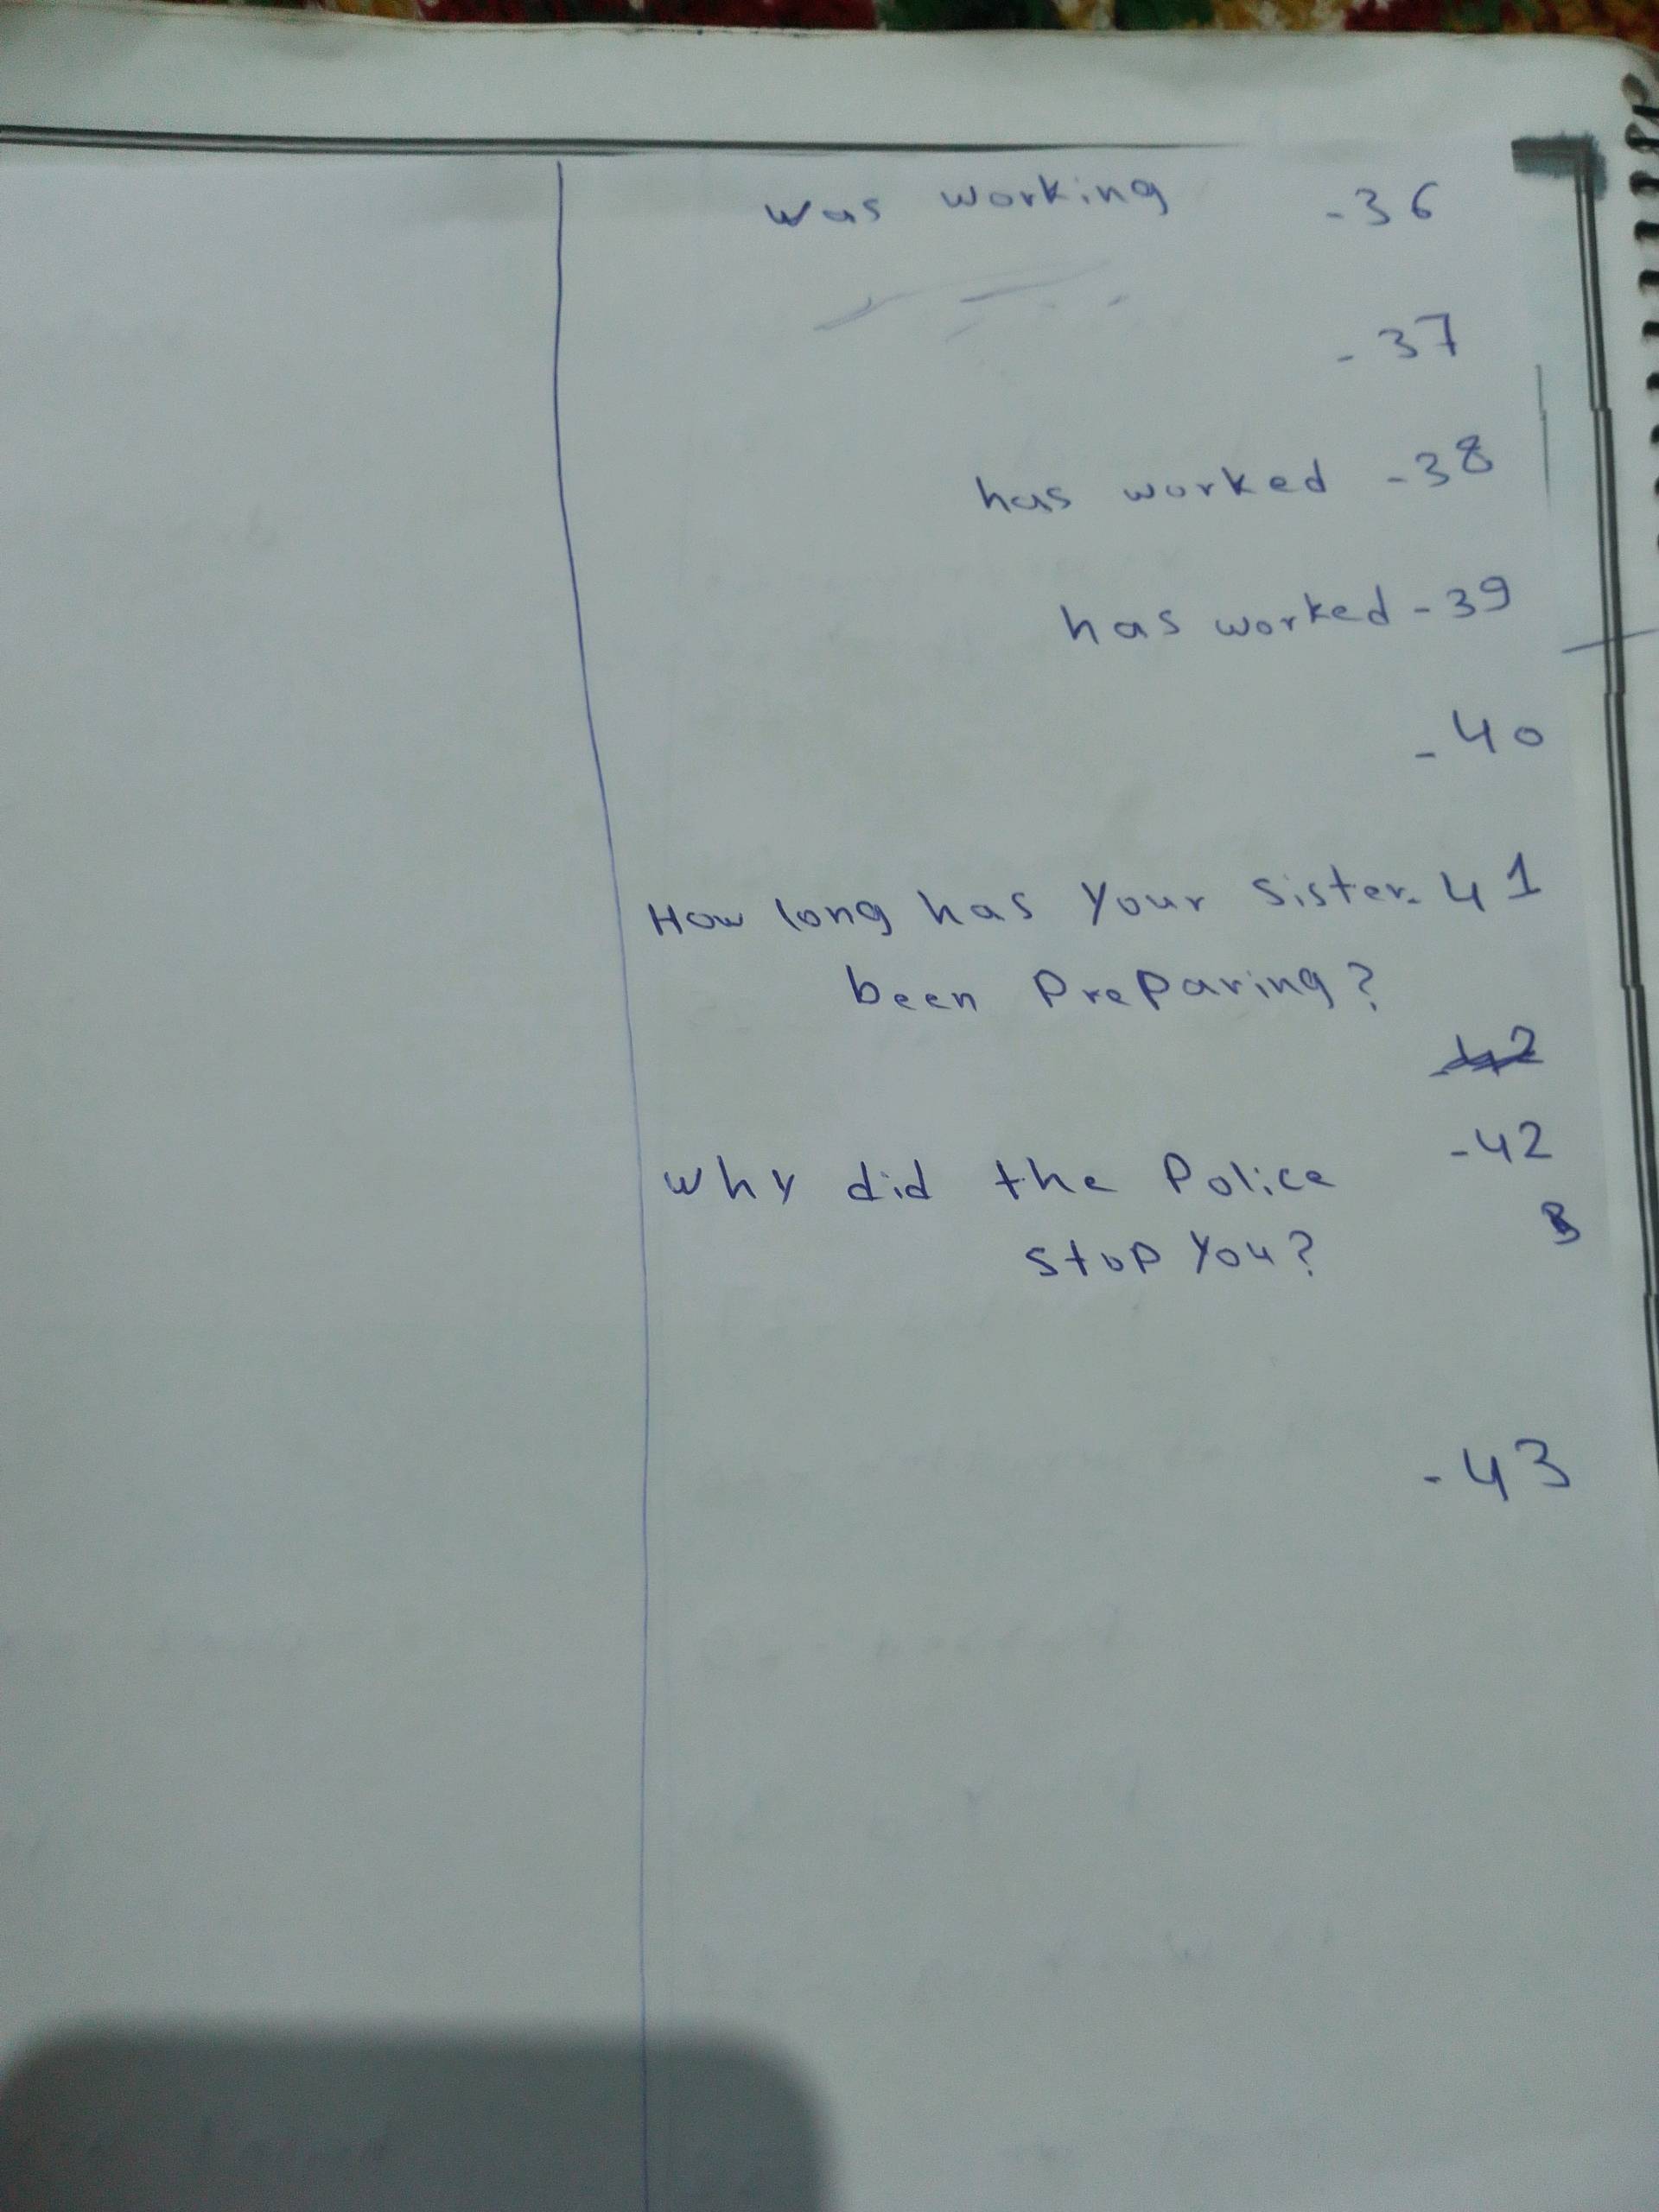 was working -36
-37
has worked -38
has worked -39
-40
How long has your sister. 41
been preparing?
-42
Why did the Police
stop you?
-43